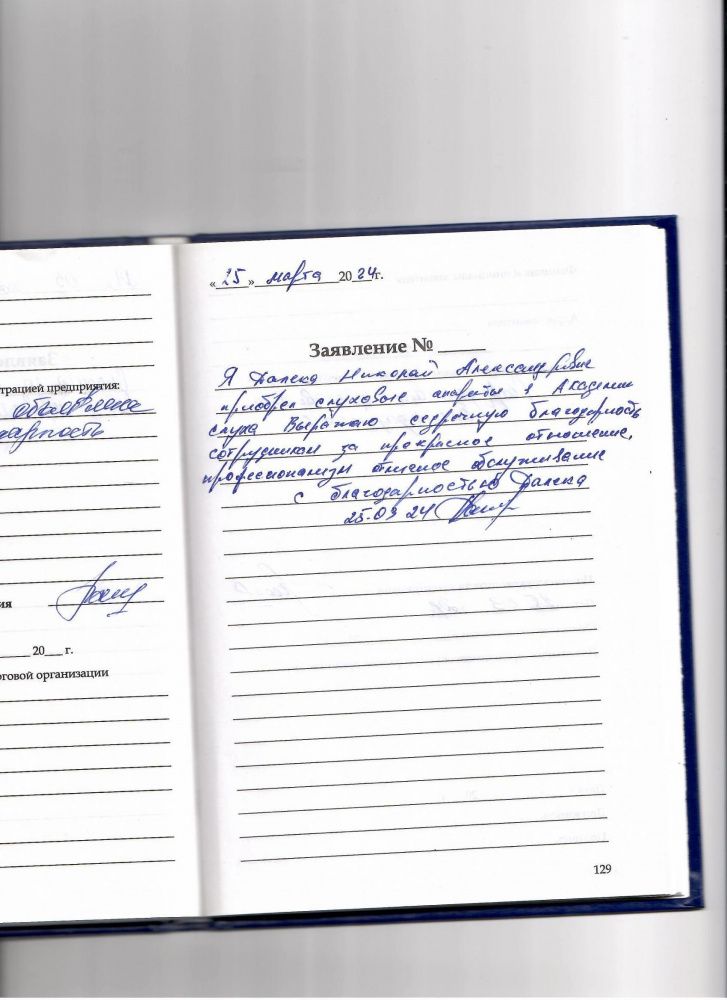 «25» марта 2024г.
Заявление №
Я Палека Николай Александрович
приобрел слуховые апараты в Академии
слуха Выражаю седрочную благодарность
сотрудникам за прекрасное отношение,
професионализм отличное обслуживание
с благодарностью Палека
25.03 24
129
трацией предприятия:
объявлена
дарность
ия
20 г.
рговой организации